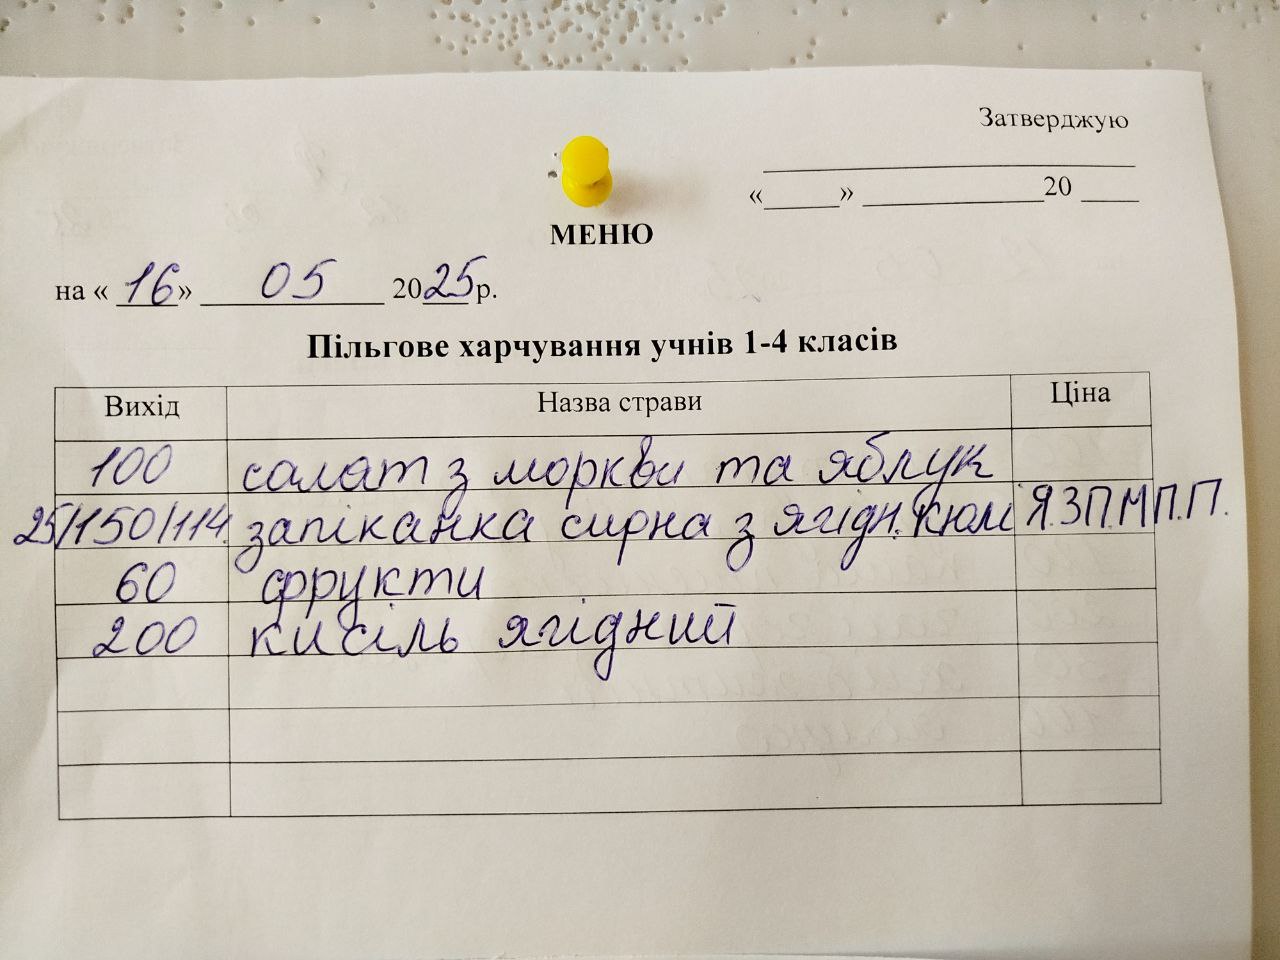 Затверджую
«_____» _____________20 ____
МЕНЮ
на « 16» 05 2025р.
Пільгове харчування учнів 1-4 класів
Вихід Назва страви Ціна
100 салат з моркви та яблук
25/150/114. запіканка сирна з ягідн. Я.ЗП.МП.П.
60 фрукти
200 кисіль ягідний